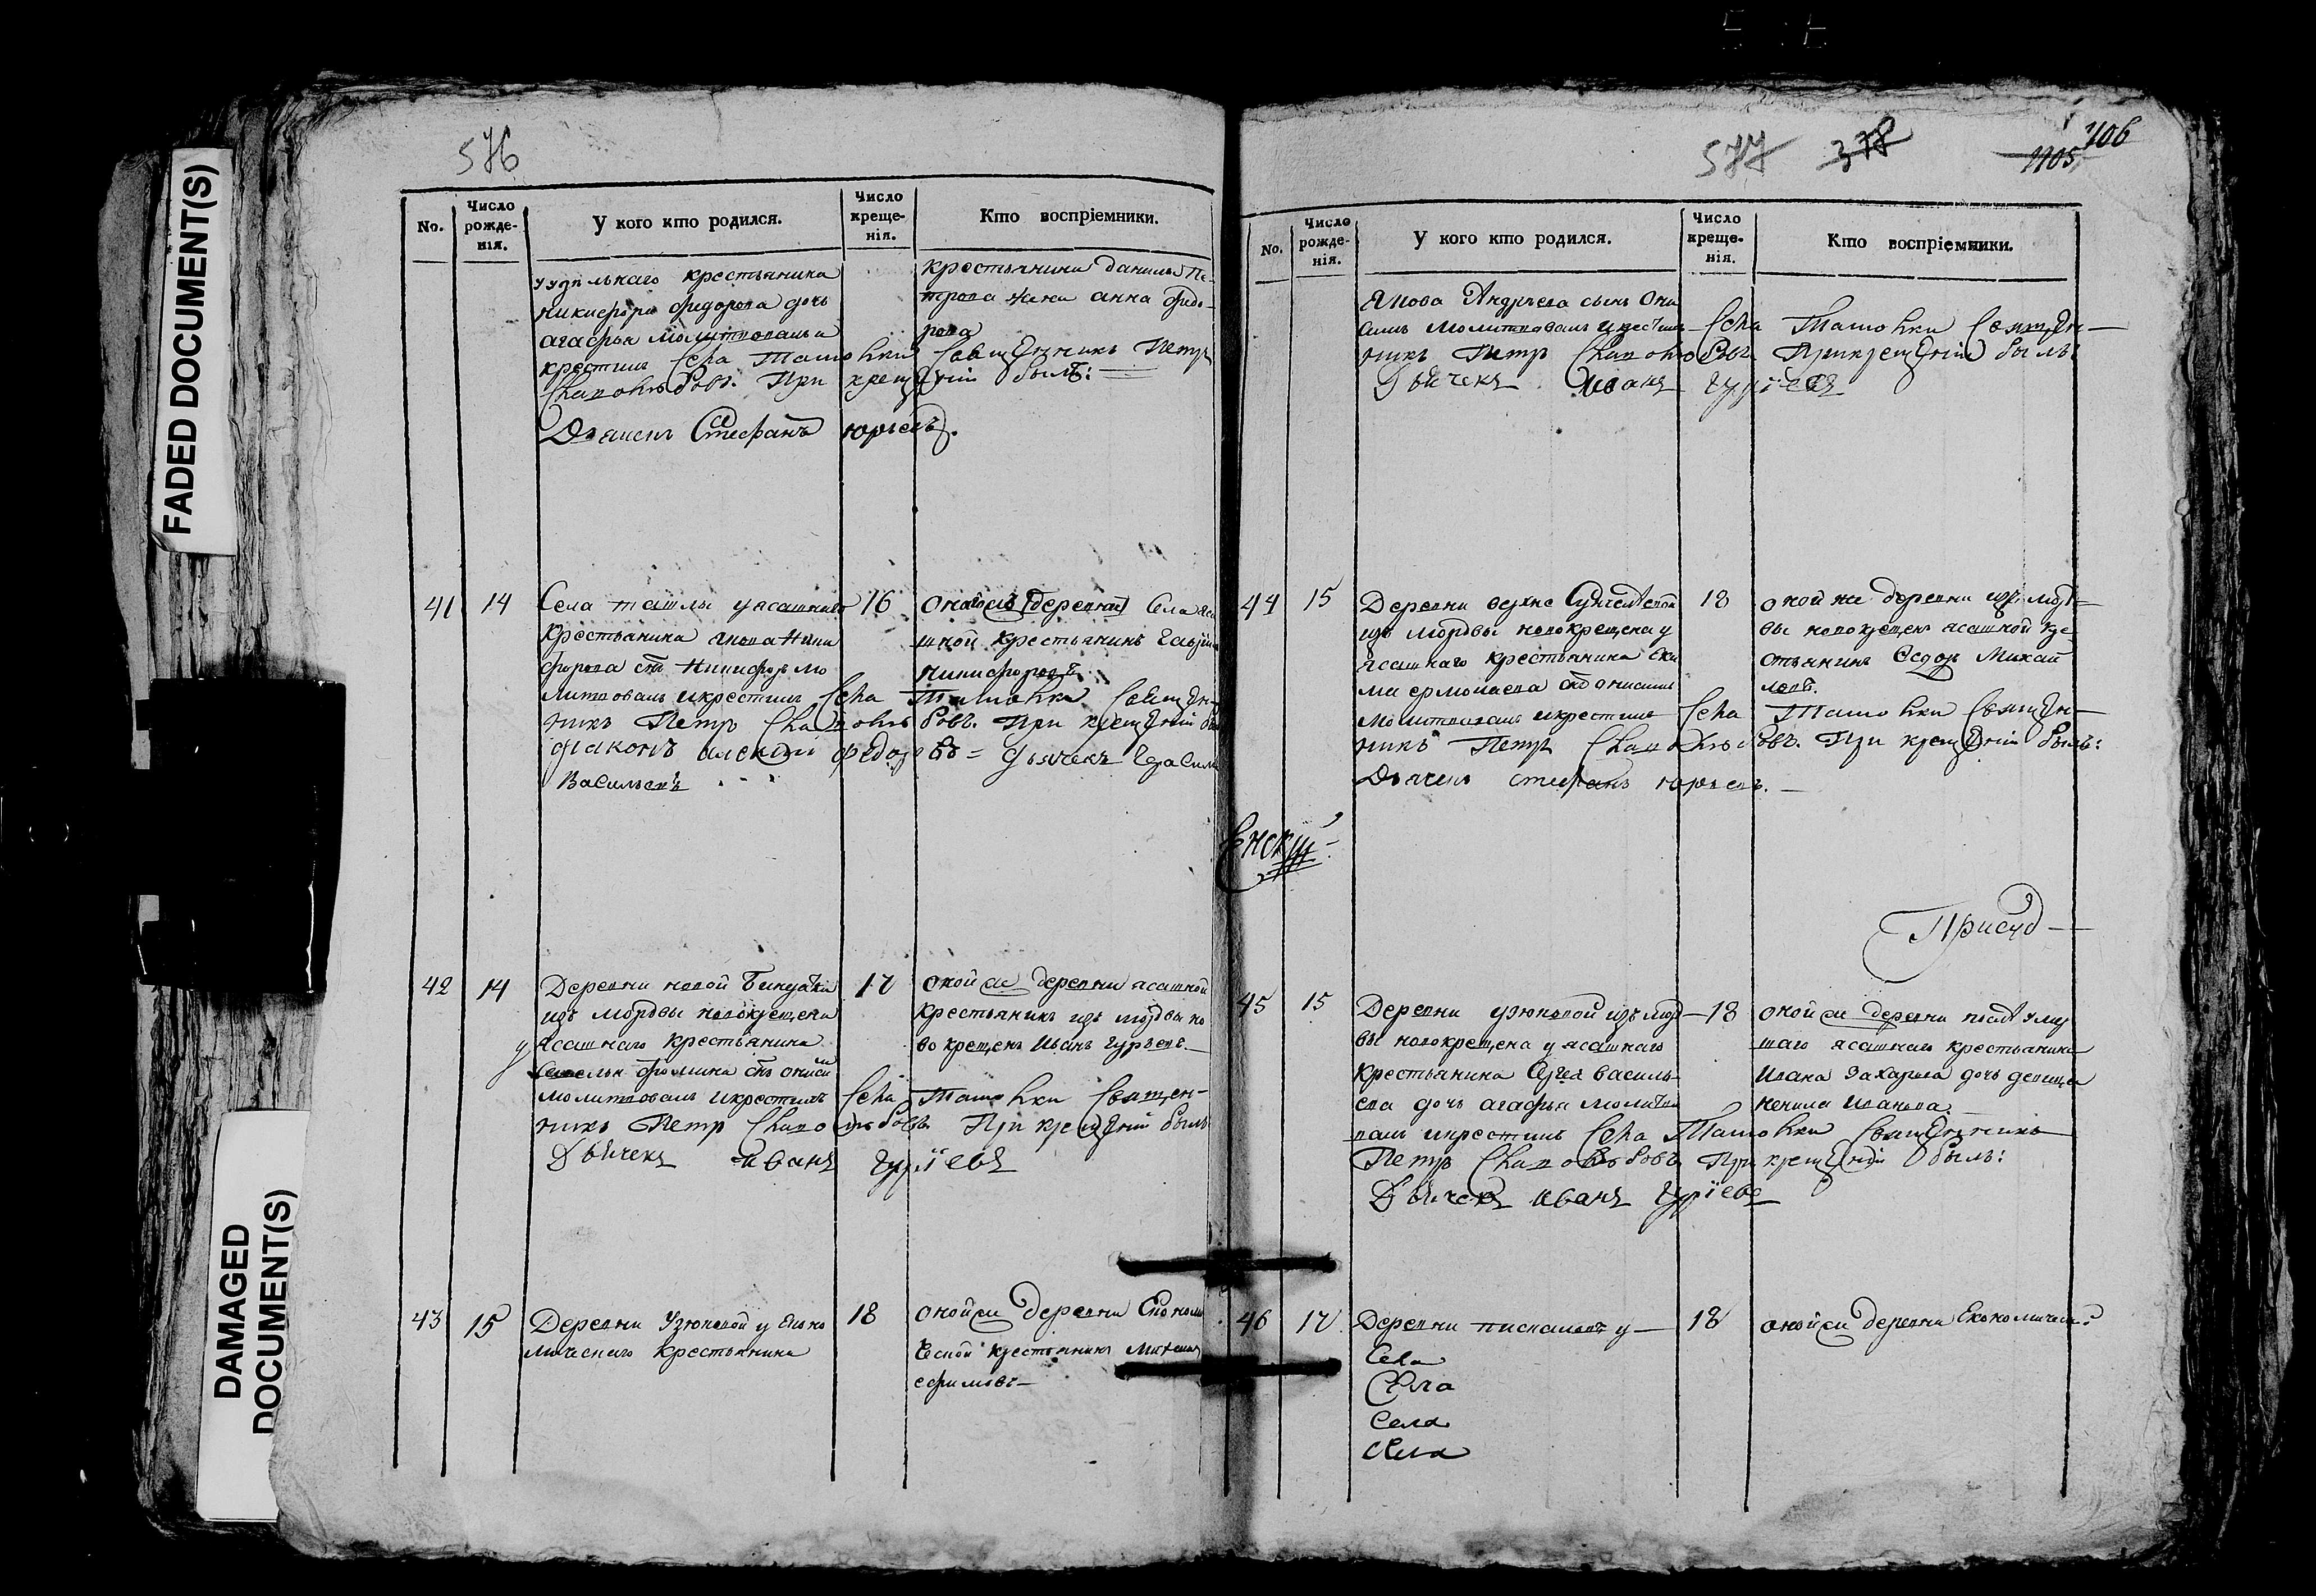 FADED DOCUMENT(S)
DAMAGED
DOCUMENT(S)
576
No.
Число рожде-нія.
У кого кто родился.
Число креще-нія.
Кто воспріемники.
удѣльнаго крестьянина
никифора федорова дочь
агафья молитвовалъ и
крестилъ Села Ташолки Священникъ Петръ
При крещеніи былъ:
Дьячекъ Стефанъ юрьевъ.
крестьянина данила Пе-
трова жена анна федо-
рова
41 14
Села ташлы у ясашнаго
крестьянина якова Ники
форова снъ Никифоръ мо
литвовалъ и крестилъ Села Ташолки Священ-
никъ Петръ При крещеніи
діаконъ алексій федоровъ = дьячекъ Герасимъ
Васильевъ
16
Села яса
шной крестьянинъ
Никифоровъ
42 14
Деревни новой
изъ мордвы новокрещена
у ясашнаго крестьянина
фомина снъ
молитвовалъ и крестилъ Села Ташолки Священ-
никъ Петръ При крещеніи былъ
Дьячекъ иванъ гурїевъ
17
оной же деревни ясашной
крестьянинъ изъ мордвы но
во крещенъ Иванъ Гурьевъ.
43 15
Деревни Узюковой у Еконо
мическаго крестьянина
18
оной же деревни Економи
ческой крестьянинъ
ефимовъ
577 378 1105 406
No.
Число рожде-нія.
У кого кто родился.
Число креще-нія.
Кто воспріемники.
Якова Андреева сынъ
молитвовалъ и крестилъ Села Ташолки Священ-
никъ Петръ При крещеніи былъ
Дьячекъ Иванъ гурїевъ
44 15
Деревни верхне
изъ мордвы новокрещена у
ясашнаго крестьянина
ермолаева снъ
молитвовалъ и крестилъ Села Ташолки Священ-
никъ Петръ При крещеніи былъ:
Дьячекъ стефанъ юрьевъ.
18
оной же деревни изъ морд-
вы новокрещенъ ясашной кре
стьянинъ Ѳедоръ Михай
ловъ.
Енскій
Присуд
45 15
Деревни узюковой изъ морд-
вы новокрещена у ясашнаго
крестьянина Сергея василь-
ева дочь агафья молитво
валъ и крестилъ Села Ташолки Священникъ
Петръ При крещеніи былъ:
Дьячекъ иванъ гурїевъ
18
оной же деревни после умер
шаго ясашнаго крестьянина
Ивана Захарова дочь девица
ненила Иванова.
46 17
Деревни пискаловъ у
Села
Села
Села
Села
18
оной же деревни Економическ